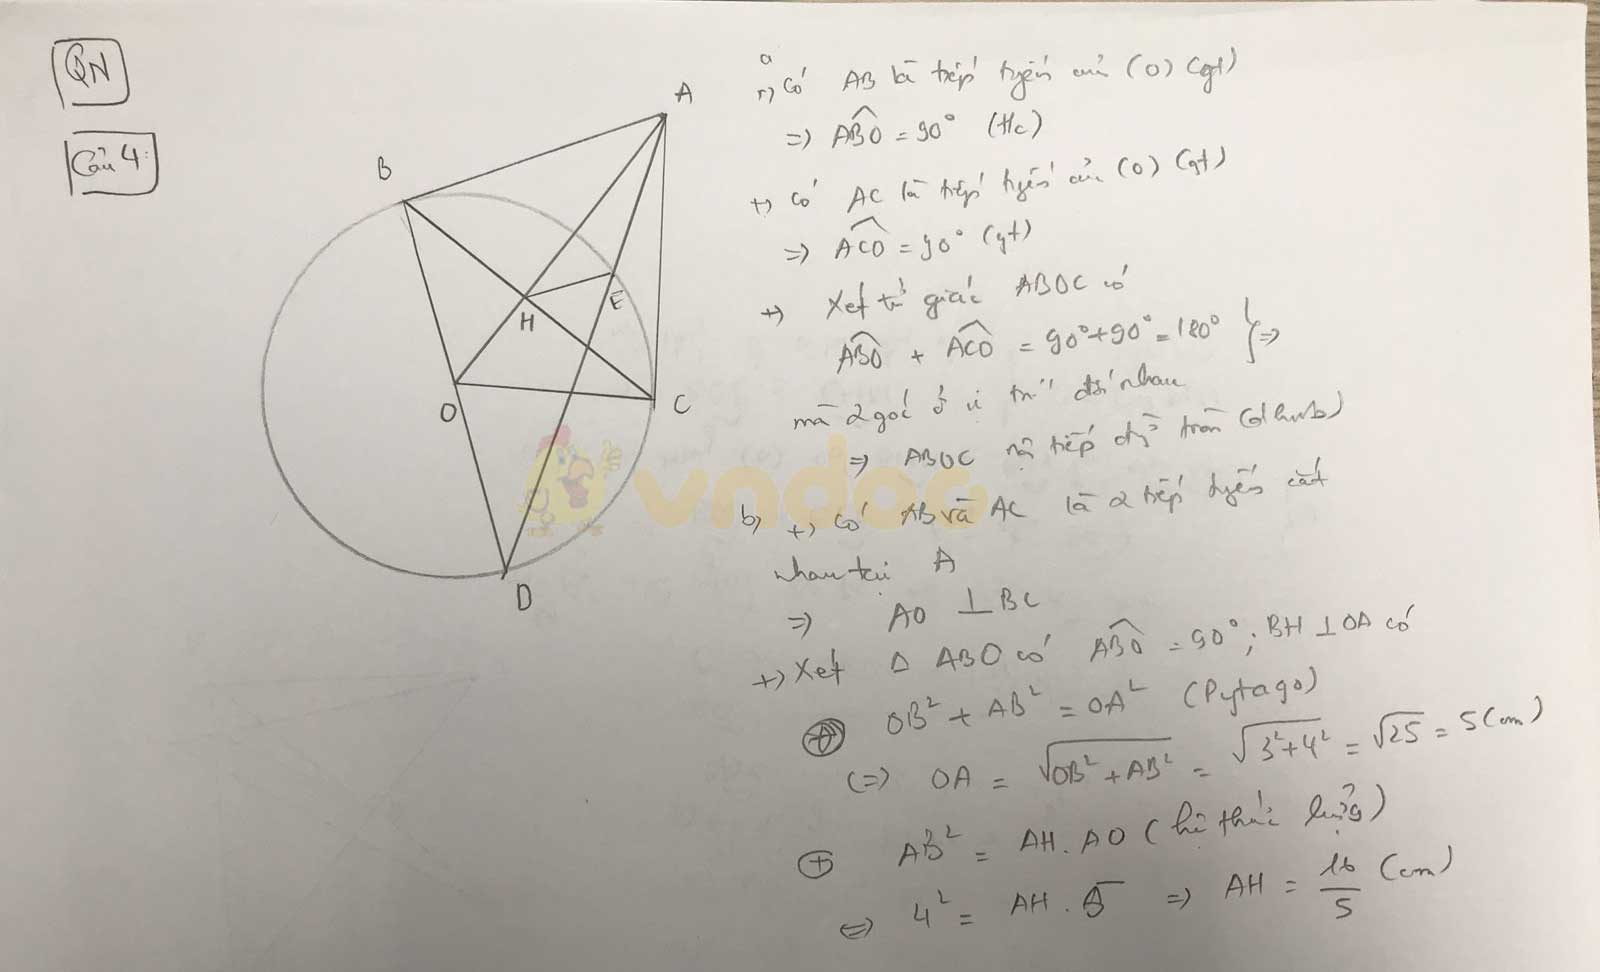 QN
Câu 4:
A
B
H
E
O
C
D
vndoc
a
+) Có AB là tiếp tuyến của (O) (gt)
=> ABO = 90° (t/c)
+) Có AC là tiếp tuyến của (O) (gt)
=> ACO = 90° (gt)
+) Xét tứ giác ABOC có
ABO + ACO = 90° + 90° = 180° } =>
mà 2 góc ở vị trí đối nhau
=> ABOC nội tiếp đường tròn (dhnb)
b) +) Có AB và AC là 2 tiếp tuyến cắt
nhau tại A
=> AO ⊥ BC
+) Xét Δ ABO có ABO = 90°; BH ⊥ OA có
OB² + AB² = OA² (Pytago)
(=> OA = √OB² + AB² = √3² + 4² = √25 = 5 (cm)
+ AB² = AH . AO (hệ thức lượng)
<=> 4² = AH . 5 => AH = 16/5 (cm)